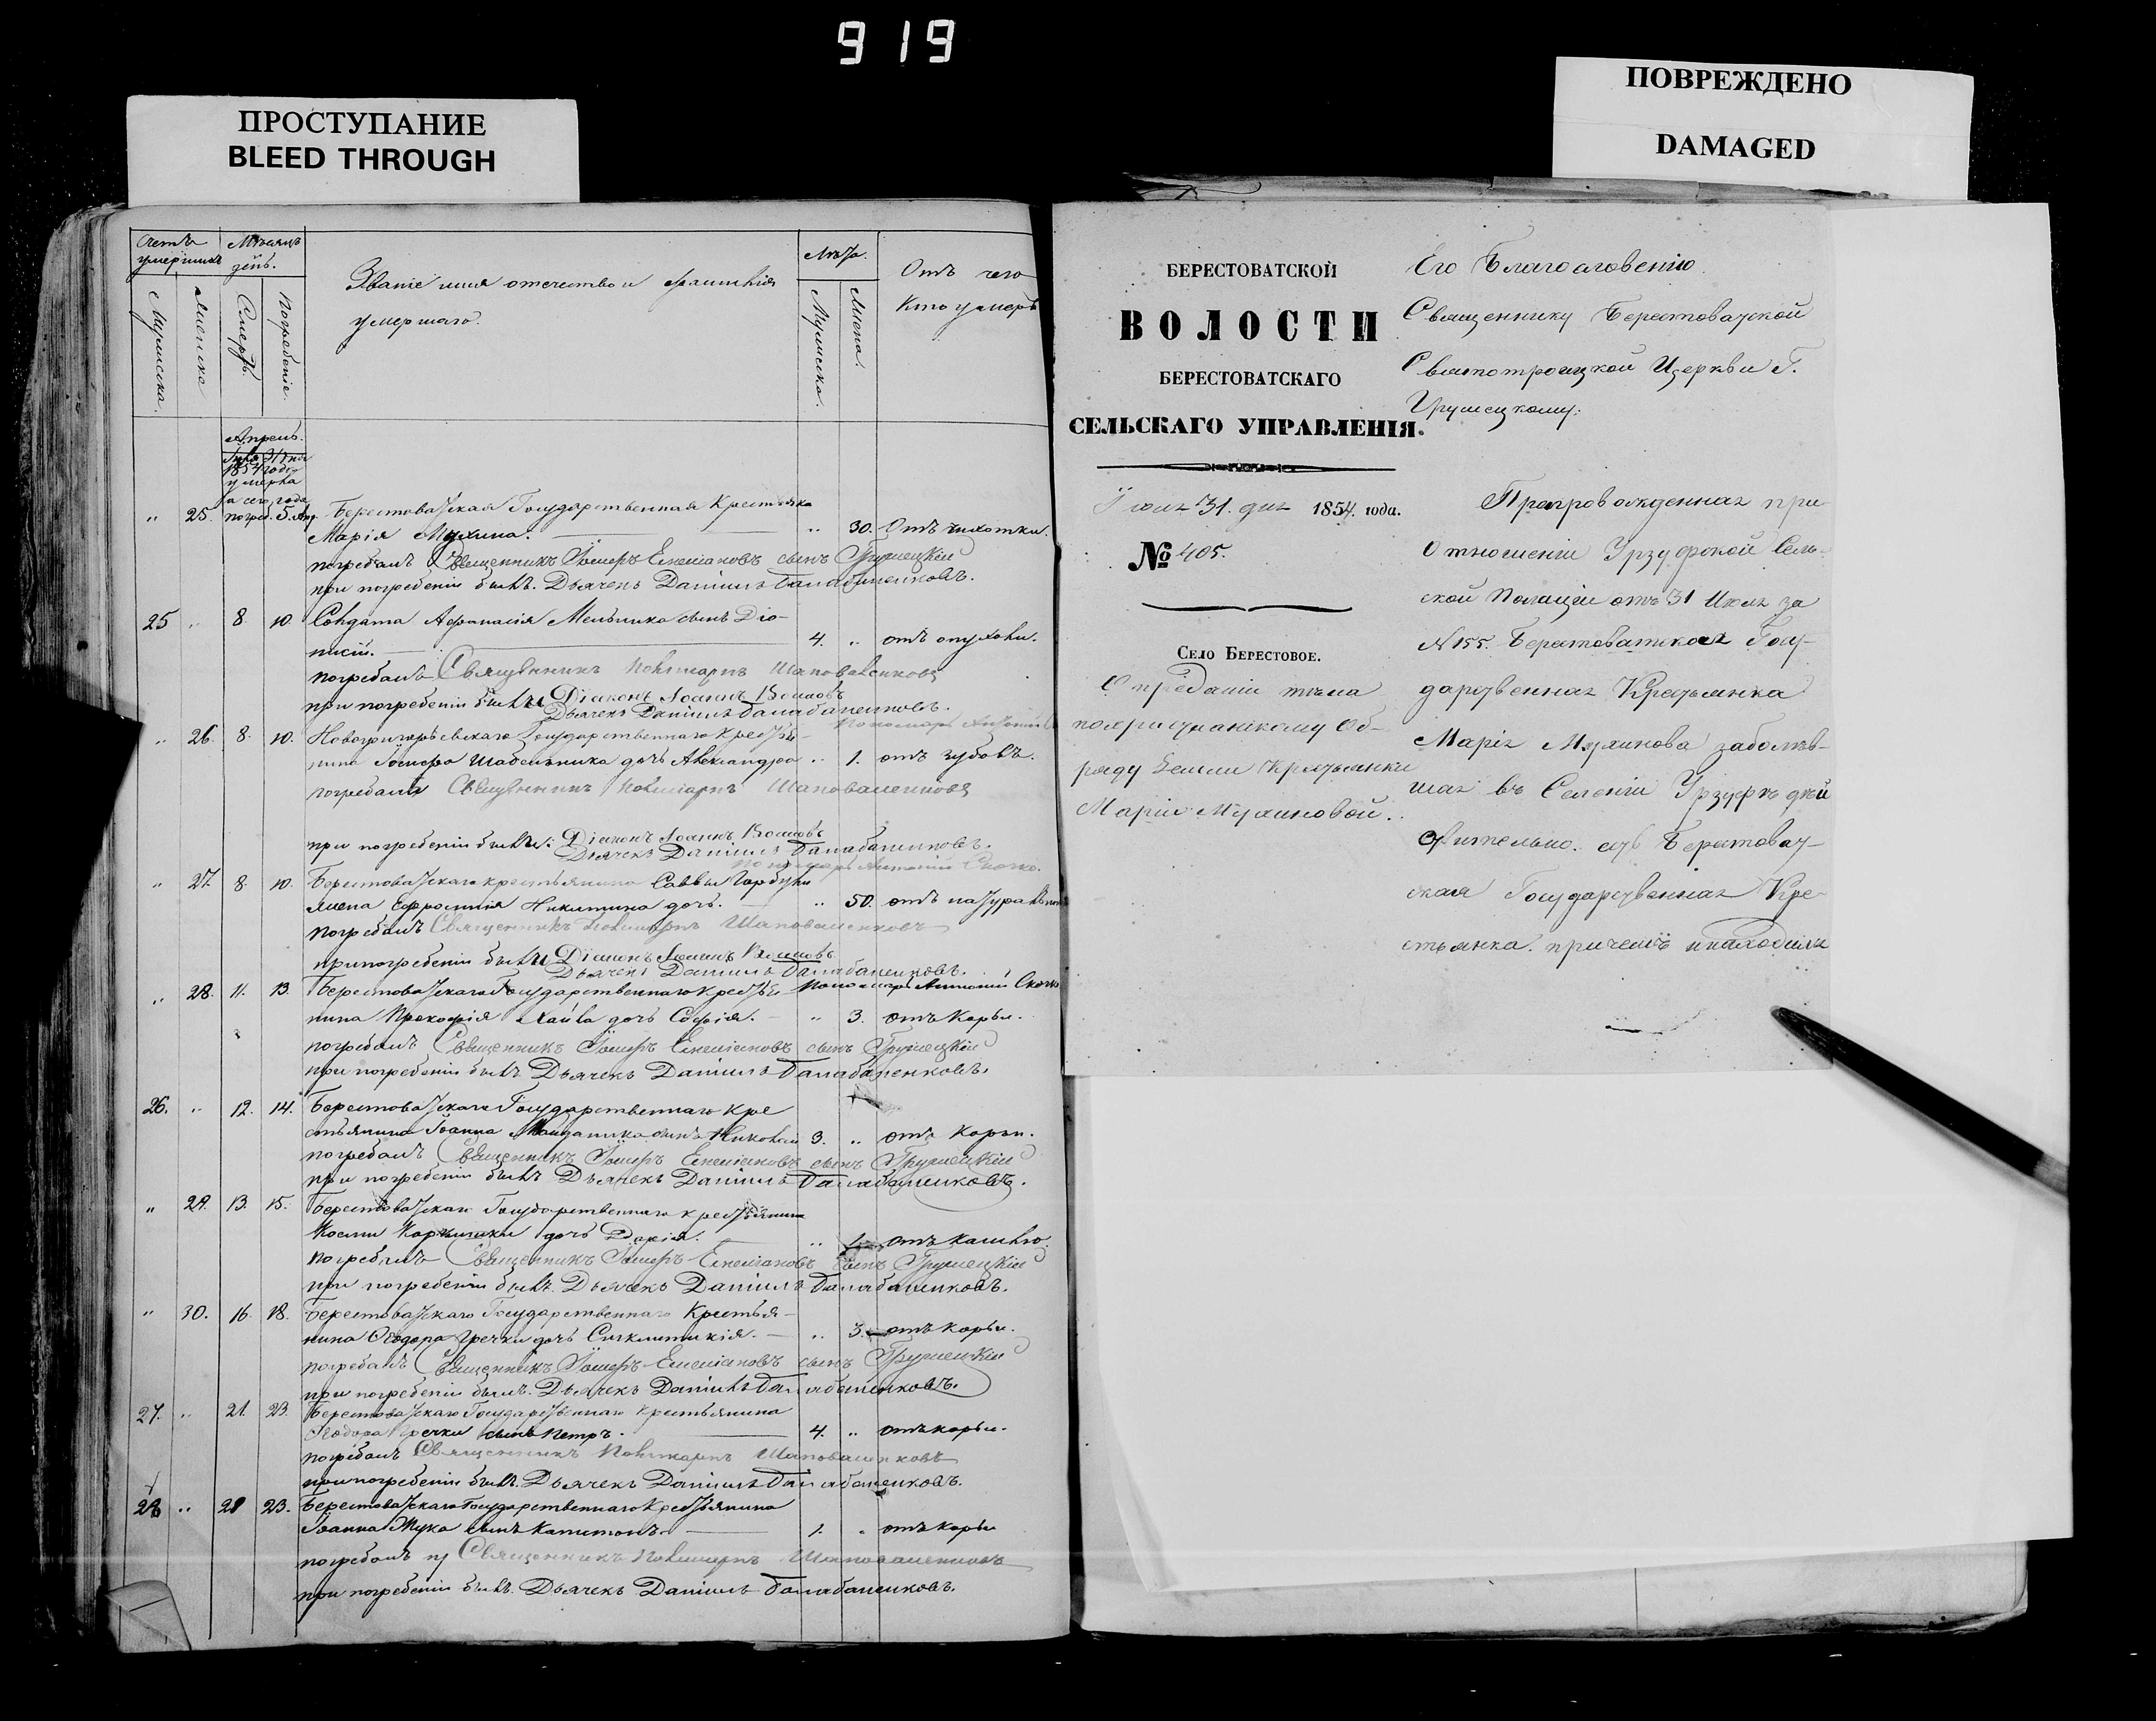 919
ПРОСТУПАНИЕ
BLEED THROUGH
ПОВРЕЖДЕНО
DAMAGED
Счетъ умершихъ
Мѣсяцъ день.
Мужеска.
Женска
Смерть.
Погребеніе.
Званіе имя отечество и фамилія
умершаго.
Лѣта.
Мужеска.
Женск.
Отъ чего
кто умеръ
Апрель.
31 дня
1854 года
умерла
а сего года
погреб. 5. Апр.
„ 25. Берестоватская Государственная Крестьянка
Марія Мухина. „ 30. Отъ чихотки.
погребалъ Священникъ Іосифъ Емеліановъ сынъ Грушецкій
при погребеніи былъ. Дьячекъ Даніилъ Балабаненковъ.
25 „ 8. 10. Солдата Афанасія Мельника сынъ Діо-
нисій. 4. „ отъ опухоли.
погребалъ Священникъ Поликарпъ Шаповаленковъ
при погребеніи были Діаконъ Іоаннъ Волковъ
Дьячекъ Даніилъ Балабаненковъ.
Пономарь Антоній
„ 26. 8. 10. Новогригорьевскаго Государственнаго Крестья-
нина Іосифа Шаблевника дочь Александра „ 1. отъ зубовъ.
погребалъ Священникъ Поликарпъ Шаповаленковъ
при погребеніи были: Діаконъ Іоаннъ Волковъ
Дьячекъ Даніилъ Балабаненковъ.
Пономарь Антоній
„ 27. 8. 10. Берестоватскаго крестьянина Саввы Горбуна
жена Ефросинія Никитина дочь. „ 50. отъ натуральной
погребалъ Священникъ Поликарпъ Шаповаленковъ
при погребеніи были Діаконъ Іоаннъ Волковъ
Дьячекъ Даніилъ Балабаненковъ.
Пономарь Антоній
„ 28. 11. 13. Берестоватскаго Государственнаго Крестья-
нина Прокофія Хайла дочь Софія. „ 3. отъ Корьи.
погребалъ Священникъ Іосифъ Емеліановъ сынъ Грушецкій
при погребеніи былъ Дьячекъ Даніилъ Балабаненковъ.
26. „ 12. 14. Берестоватскаго Государственнаго Кре
стьянина Іоанна сынъ Николай 3. „ отъ Корьи.
погребалъ Священникъ Іосифъ Емеліановъ сынъ Грушецкій
при погребеніи былъ Дьячекъ Даніилъ Балабаненковъ.
„ 29. 13. 15. Берестоватскаго Государственнаго крестьянина
Косми дочь Дарія. „ 1. отъ кашлю.
погребалъ Священникъ Іосифъ Емеліановъ сынъ Грушецкій
при погребеніи былъ. Дьячекъ Даніилъ Балабаненковъ.
„ 30. 16. 18. Берестоватскаго Государственнаго Крестья-
нина Ѳеодора Гречки дочь Сигклитикія. „ 3. отъ корьи.
погребалъ Священникъ Іосифъ Емеліановъ сынъ Грушецкій
при погребеніи былъ. Дьячекъ Даніилъ Балабаненковъ.
27. „ 21. 23. Берестоватскаго Государственнаго крестьянина
Ѳеодора Гречки сынъ Петръ. 4. „ отъ корьи.
погребалъ Священникъ Поликарпъ Шаповаленковъ
при погребеніи былъ. Дьячекъ Даніилъ Балабаненковъ.
28 „ 21 23. Берестоватскаго Государственнаго Крестьянина
Іоанна Жука сынъ Капитонъ. 1. „ отъ корьи
погребалъ Священникъ Поликарпъ Шаповаленковъ
при погребеніи былъ. Дьячекъ Даніилъ Балабаненковъ.
БЕРЕСТОВАТСКОЙ
ВОЛОСТИ
БЕРЕСТОВАТСКАГО
СЕЛЬСКАГО УПРАВЛЕНІЯ.
Іюля 31. дня 1854. года.
№ 405.
Село Берестовое.
О преданіи тѣла
по христіанскому Об-
ряду Земли Крестьянки
Маріи Мухиновой.
Его Благоговенію
Священнику Берестоватской
Святотроицкой Церкви Г.
Грушецкому.
Препровожденная при
Отношеніи Урзуфской Сель-
ской Полиціи отъ 31 Июля за
N 155. Берестоватская Госу-
дарственная Крестьянка
Марія Мухинова заболѣв-
шая въ Селеніи Урзуфѣ дѣй
ствительно. есть Берестоват-
ская Государственная Кре-
стьянка. причемъ